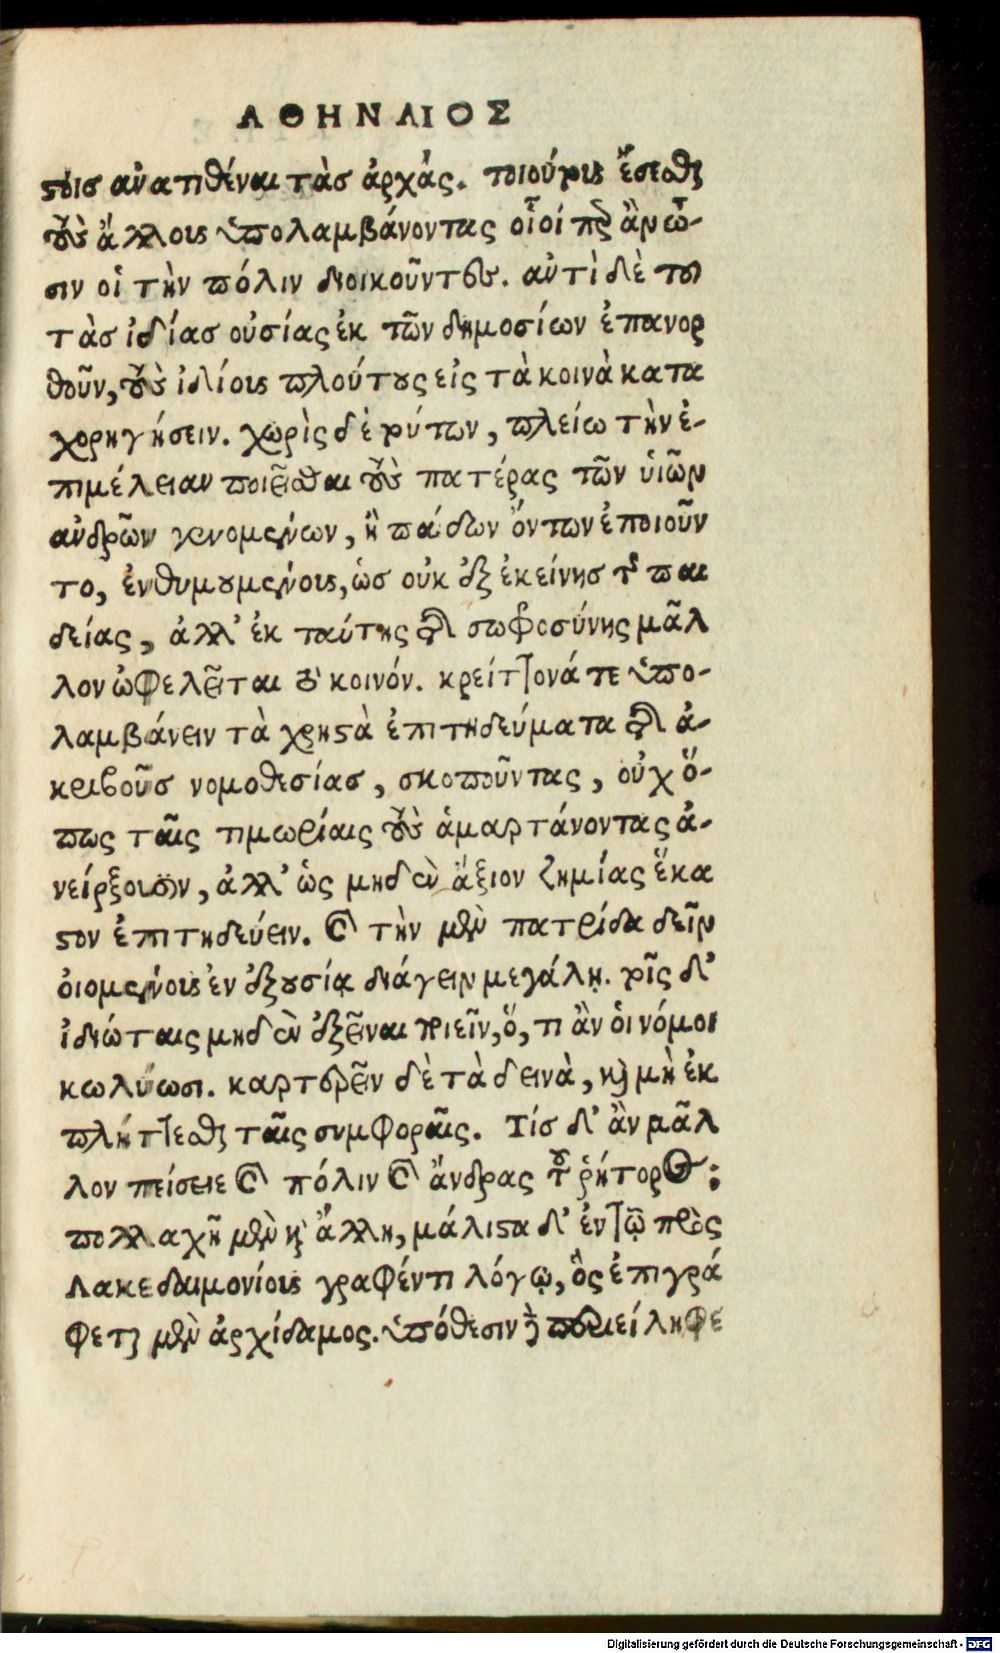 ΑΘΗΝΑΙΟΣ
στοις ἀνατιθέναι τὰσ ἀρχάς. τοιούτους ἔσεσθαι
τοὺς ἄλλους ὑπολαμβάνοντας οἷοί περ ἂν ὦ-
σιν οἱ τὴν πόλιν διοικοῦντες. ἀντὶ δὲ του
τὰσ ἰδίασ οὐσίας ἐκ τῶν δημοσίων ἐπανορ
θοῦν, τοὺς ἰδίους πλούτους εἰς τὰ κοινὰ κατα
χορηγήσειν. χωρὶς δὲ τούτων, πλείω τὴν ἐ-
πιμέλειαν ποιεῖσθαι τοὺς πατέρας τῶν ὑιῶν
ἀνδρῶν γενομένων, ἢ παίδων ὄντων ἐποιοῦν
το, ἐνθυμουμένους, ὡσ οὐκ ἐξ ἐκείνησ τῆς παι
δείας, ἀλλ' ἐκ ταύτης τῆς σωφροσύνης μᾶλ
λον ὠφελεῖται τὸ κοινόν. κρείττονά τε ὑπο-
λαμβάνειν τὰ χρηστὰ ἐπιτηδεύματα τῆς ἀ-
κριβοῦσ νομοθεσίασ, σκοποῦντας, οὐχ ὅ-
πως ταῖς τιμωρίαις τοὺς ἁμαρτάνοντας ἀ-
νείρξουσιν, ἀλλ' ὡς μηδὲν ἄξιον ζημίας ἕκα
στον ἐπιτηδεύειν. καὶ τὴν μὲν πατρίδα δεῖν
ὀιομένους ἐν ἐξουσίᾳ διάγειν μεγάλῃ. τοῖς δ'
ἰδιώταις μηδὲν ἐξεῖναι ποιεῖν, ὅ, τι ἂν ὁι νόμοι
κωλύωσι. καρτερεῖν δὲ τὰ δεινὰ, καὶ μὴ ἐκ
πλήττεσθαι ταῖς συμφοραῖς. Τίσ δ' ἂν μᾶλ
λον πείσειε καὶ πόλιν καὶ ἄνδρας τοῦ ῥήτορος;
πολλαχῆ μὲν καὶ ἄλλη, μάλιστα δ' ἐν τῷ πρὸς
Λακεδαιμονίους γραφέντι λόγῳ, ὃς ἐπιγρά
φεται μὲν ἀρχίδαμος. ὑπόθεσιν δὲ περιείληφε
Digitalisierung gefördert durch die Deutsche Forschungsgemeinschaft - DFG